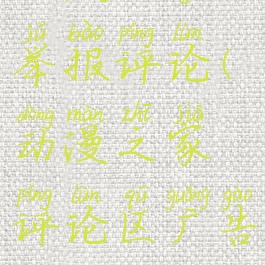 jǔ bào píng lùn
举报评论(
dòng màn zhī jiā
动漫之家
píng lùn qū guǎng gào
评论区广告